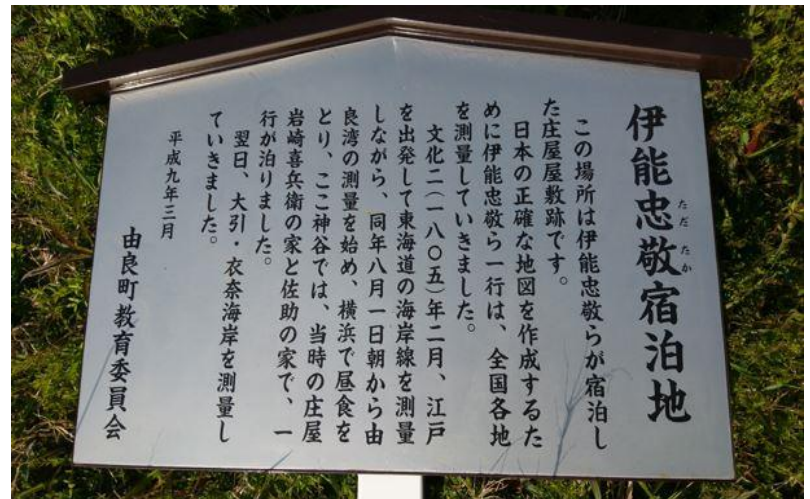 伊能忠敬宿泊地
ただたか
この場所は伊能忠敬らが宿泊し
た庄屋屋敷跡です。
日本の正確な地図を作成するた
めに伊能忠敬ら一行は、全国各地
を測量していきました。
文化二(一八〇五)年二月、江戸
を出発して東海道の海岸線を測量
しながら、同年八月一日朝から由
良湾の測量を始め、横浜で昼食を
とり、ここ神谷では、当時の庄屋
岩崎喜兵衛の家と佐助の家で、一
行が泊りました。
翌日、大引・衣奈海岸を測量し
ていきました。
平成九年三月
由良町教育委員会